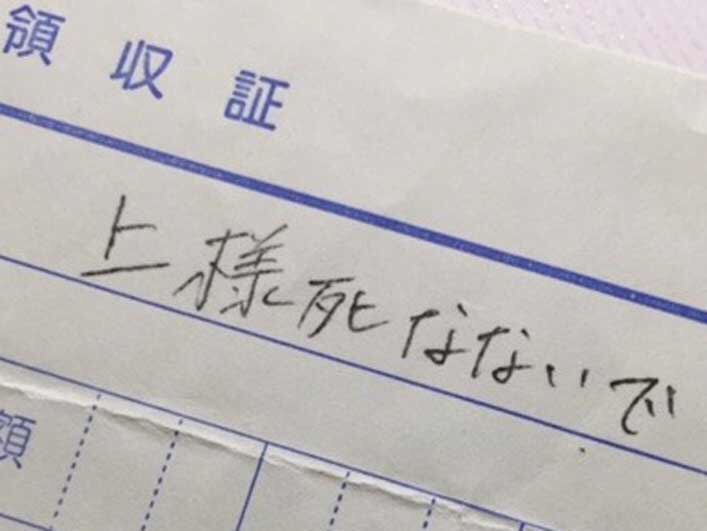 領収証
上様死なないで
額